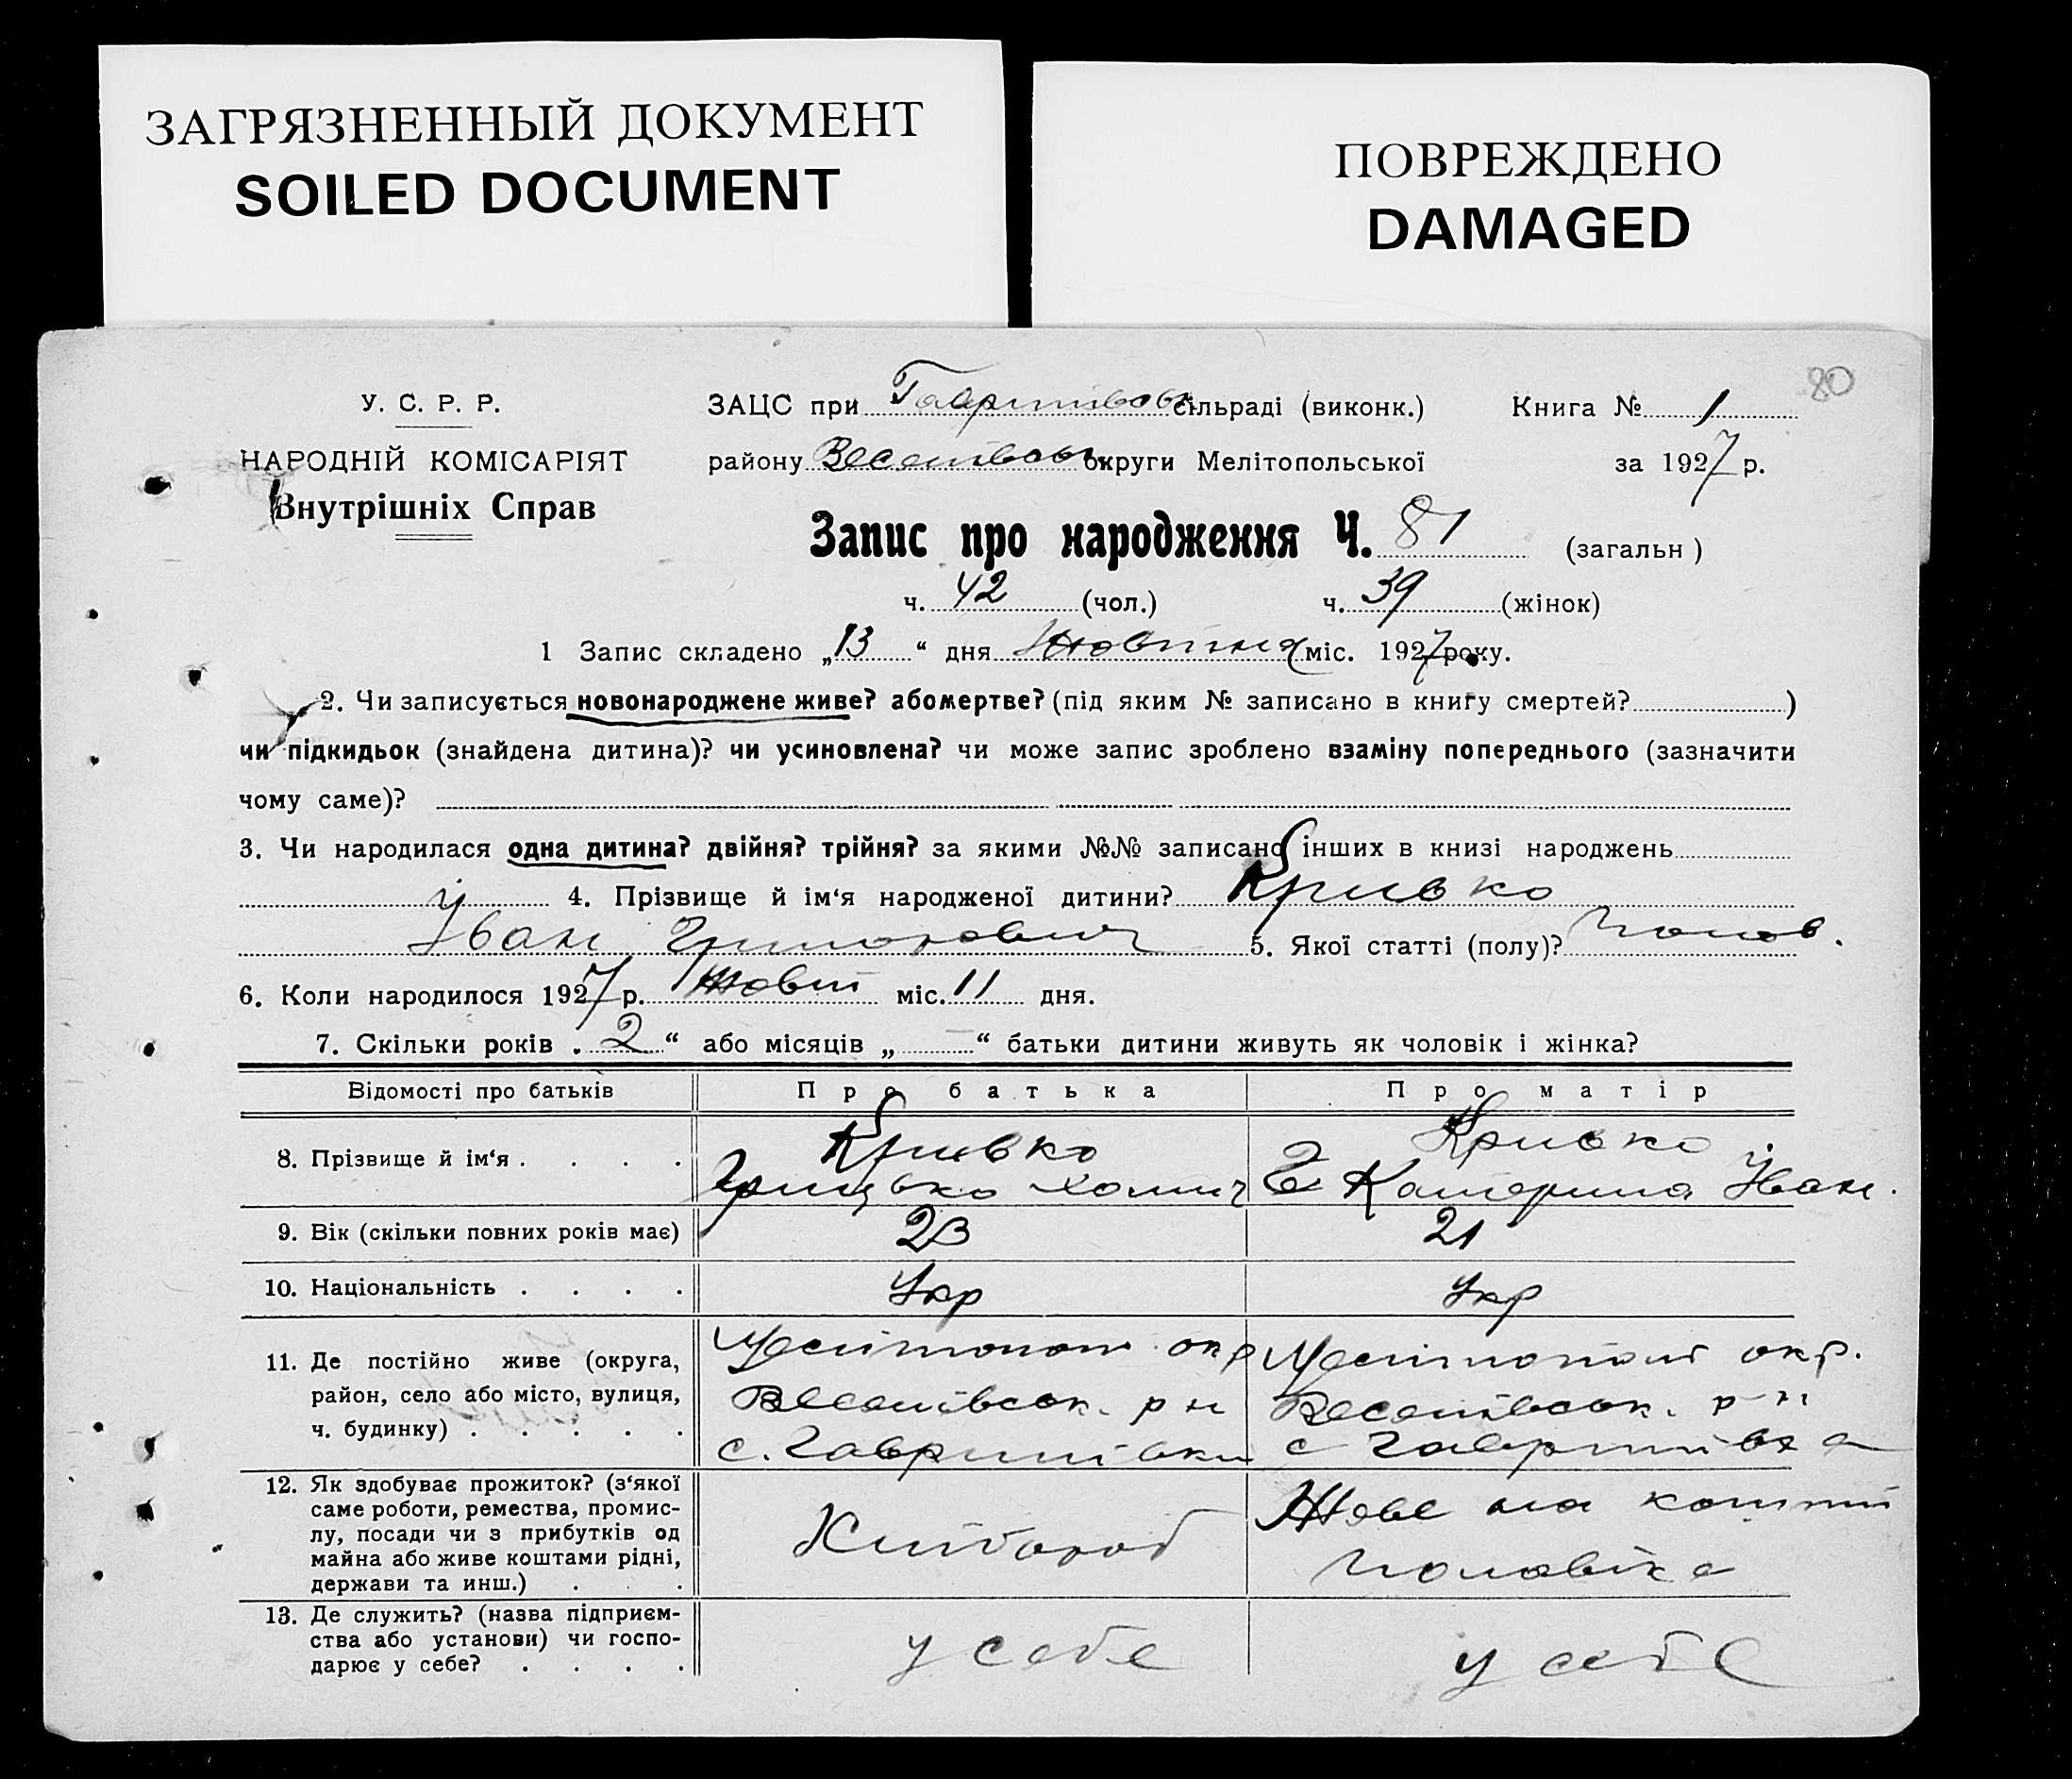 ЗАГРЯЗНЕННЫЙ ДОКУМЕНТ
SOILED DOCUMENT
ПОВРЕЖДЕНО
DAMAGED
80
У. С. Р. Р.
НАРОДНІЙ КОМІСАРІЯТ
Внутрішніх Справ
ЗАЦС при Гаврилівськ сільраді (виконк.) Книга № 1
району Веселівськ округи Мелітопольської за 1927 р.
Запис про народження Ч. 81 (загальн )
ч. 42 (чол.) ч. 39 (жінок)
1 Запис складено „13“ дня Жовтня міс. 1927 року.
2. Чи записується новонароджене живе? або мертве? (під яким № записано в книгу смертей? )
чи підкидьок (знайдена дитина)? чи усиновлена? чи може запис зроблено взаміну попереднього (зазначити
чому саме)?
3. Чи народилася одна дитина? двійня? трійня? за якими №№ записано інших в книзі народжень
4. Прізвище й ім‘я народженої дитини? Кривко
Іван Григорович 5. Якої статті (полу)? Чолов.
6. Коли народилося 1927 р. Жовт міс. 11 дня.
7. Скільки років 2 “ або місяців „ — “ батьки дитини живуть як чоловік і жінка?
Відомості про батьків Про батька Про матір
8. Прізвище й ім‘я . . . . Кривко Кривко
Грицько Хомич Катерина Іван.
9. Вік (скільки повних років має) 23 21
10. Національність . . . . Укр Укр
11. Де постійно живе (округа, Мелітопол окр Мелітопол окр.
район, село або місто, вулиця, Веселівськ. р н Веселівськ. р-н
ч. будинку) . . . . . с. Гаврилівки с Гаврилівка
12. Як здобуває прожиток? (з‘якої
саме роботи, ремества, промис-
лу, посади чи з прибутків од
майна або живе коштами рідні,
держави та инш.) . . . Хлібороб Живе на кошти
чоловіка
13. Де служить? (назва підприєм-
ства або установи) чи госпо-
дарює у себе? . . . . у себе у себе